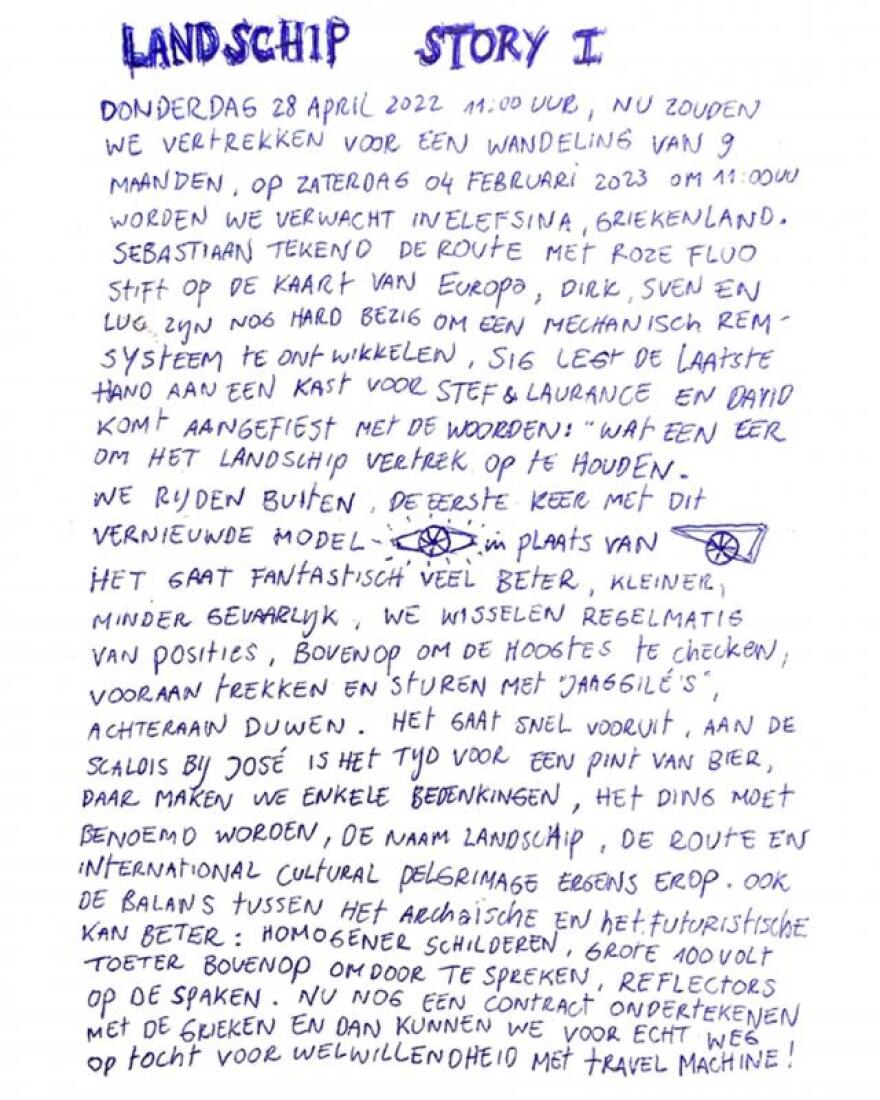 LANDSCHIP STORY I
DONDERDAG 28 APRIL 2022 11:00 UUR, NU ZOUDEN
WE VERTREKKEN VOOR EEN WANDELING VAN 9
MAANDEN, OP ZATERDAG 04 FEBRUARI 2023 OM 11:00UU
WORDEN WE VERWACHT IN ELEFSINA, GRIEKENLAND.
SEBASTIAAN TEKEND DE ROUTE MET ROZE FLUO
STIFT OP DE KAART VAN EUROPA, DIRK, SVEN EN
LUG ZYN NOG HARD BEZIG OM EEN MECHANISCH REM-
SYSTEEM TE ONTWIKKELEN, SIG LEGT DE LAATSTE
HAND AAN EEN KAST VOOR STEF & LAURANCE EN DAVID
KOMT AANGEFIEST MET DE WOORDEN: "WAT EEN EER
OM HET LANDSCHIP VERTREK OP TE HOUDEN.
WE RIJDEN BUITEN, DE EERSTE KEER MET DIT
VERNIEUWDE MODEL - in PLAATS VAN
HET GAAT FANTASTISCH VEEL BETER, KLEINER,
MINDER GEVAARLYK, WE WISSELEN REGELMATIG
VAN POSITIES, BOVENOP OM DE HOOGTES TE CHECKEN,
VOORAAN TREKKEN EN STUREN MET "JAAGGILÉ'S",
ACHTERAAN DUWEN. HET GAAT SNEL VOORUIT, AAN DE
SCALDIS BY JOSÉ IS HET TYD VOOR EEN PINT VAN BIER,
DAAR MAKEN WE ENKELE BEDENKINGEN, HET DING MOET
BENOEMD WORDEN, DE NAAM LANDSCHIP, DE ROUTE EN
INTERNATIONAL CULTURAL PELGRIMAGE ERGENS EROP. OOK
DE BALANS TUSSEN HET ARCHAÏSCHE EN HET FUTURISTISCHE
KAN BETER: HOMOGENER SCHILDEREN, GROTE 100 VOLT
TOETER BOVENOP OM DOOR TE SPREKEN, REFLECTORS
OP DE SPAKEN. NU NOG EEN CONTRACT ONDERTEKENEN
MET DE GRIEKEN EN DAN KUNNEN WE VOOR ECHT WEG
OP TOCHT VOOR WELWILLENDHEID MET TRAVEL MACHINE!